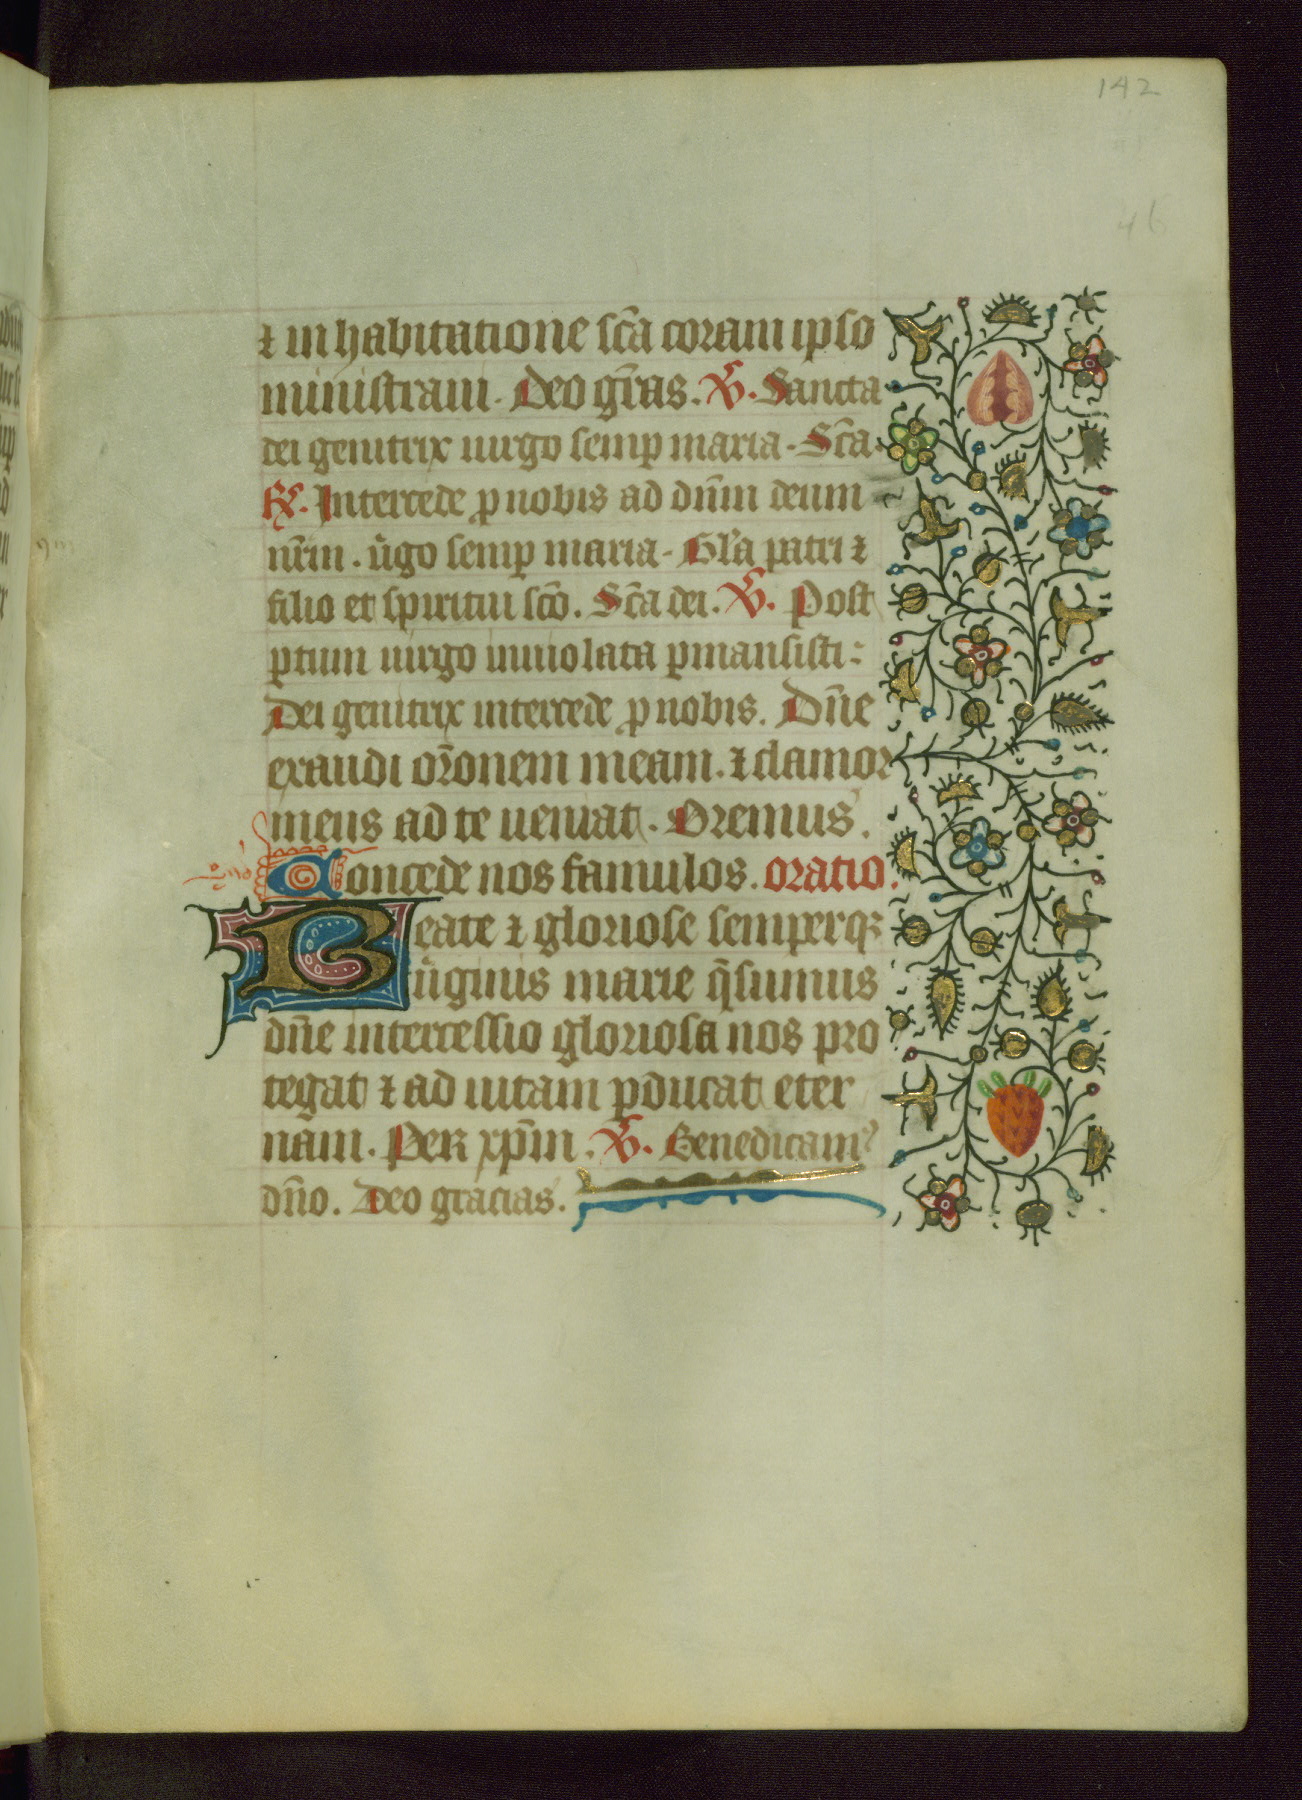 142
46
⁊ in habitatione sc̄a coram ipso
ministraui. Deo gr̄as. V̄. Sancta
dei genitrix uirgo semp̱ maria. Sc̄a.
R̄. Intercede ꝓ nobis ad dn̄m deum
nr̄m. u̇go semp̱ maria. Gl'a patri ⁊
filio et spiritui sc̄o. Sc̄a dei. V̄. Post
ꝑtum uirgo inuiolata ꝑmansisti:
Dei genitrix intercede ꝓ nobis. Dn̄e
exaudi or̄onem meam. ⁊ clamor
meus ad te ueniat. Oremus.
Concede nos famulos. oratio.
Beate ⁊ gloriose semperqꝫ
u̇ginis marie q̄sumus
dn̄e intercessio gloriosa nos pro
tegat ⁊ ad uitam ꝑducat eter
nam. Per xp̄m. V̄. Benedicamꝰ
dn̄o. Deo gracias.